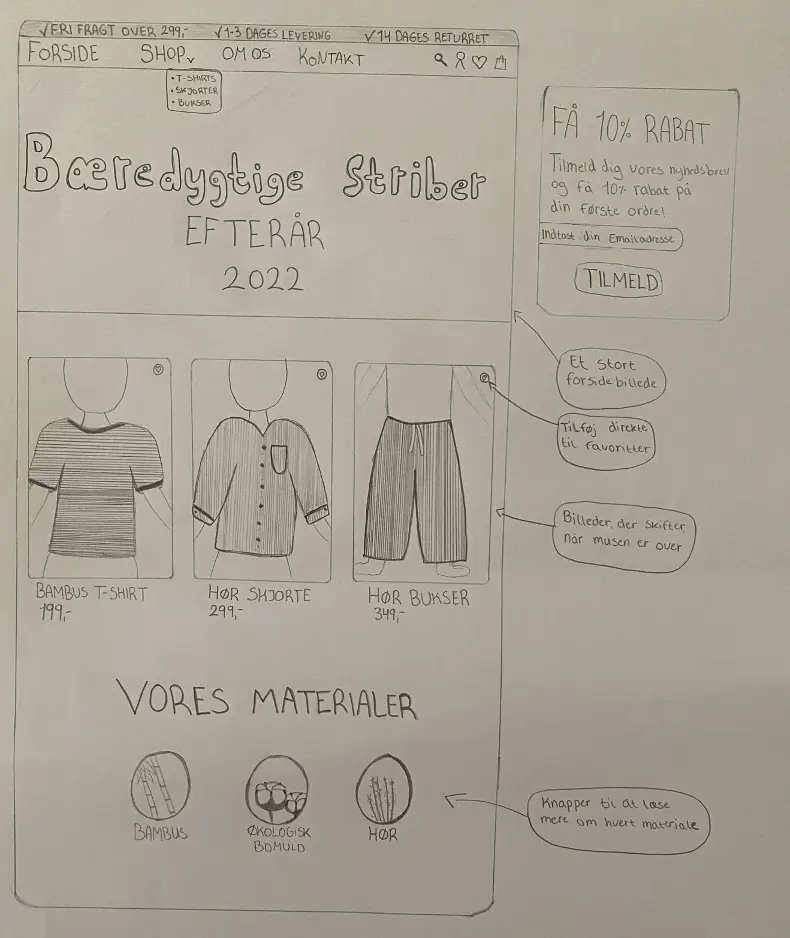 √FRI FRAGT OVER 299,- √1-3 DAGES LEVERING √14 DAGES RETURRET
FORSIDE SHOP OM OS KONTAKT
• T-SHIRTS
• SKJORTER
• BUKSER
Bæredygtige Striber
EFTERÅR
2022
FÅ 10% RABAT
Tilmeld dig vores nyhedsbrev
og få 10% rabat på
din første ordre!
Indtast din Emailadresse
TILMELD
Et stort
forsidebillede
Tilføj direkte
til favoritter
Billeder, der skifter,
når musen er over
BAMBUS T-SHIRT
199,-
HØR SKJORTE
299,-
HØR BUKSER
349,-
VORES MATERIALER
BAMBUS
ØKOLOGISK
BOMULD
HØR
Knapper til at læse
mere om hvert materiale